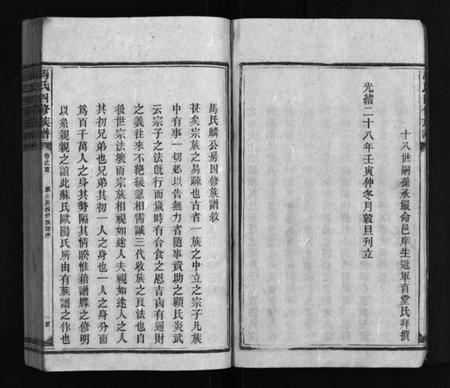 十八世嗣孫承嚴命邑庠生冠軍育堂氏拜撰
光緒二十八年壬寅仲冬月穀旦刊立
馬氏麟公房四修族譜敘
甚矣宗族之易疎也古者一族之中立之宗子凡族
中有事一切必以告無力者隨事資助之顧氏炎武
云宗子之法既行而歲時有合食之恩吉凶有通財
之義往來不絕緩急相需誠三代收族之良法也自
後世宗法壞而宗族相視如途人夫視如途人之人
其初兄弟也兄弟其初一人之身也一人之身分而
為百千萬人之身其勢隔其情睽惟藉譜牒之修明
以系親親之誼此蘇氏歐陽氏所由有族譜之作也
馬氏四修族譜
卷之首